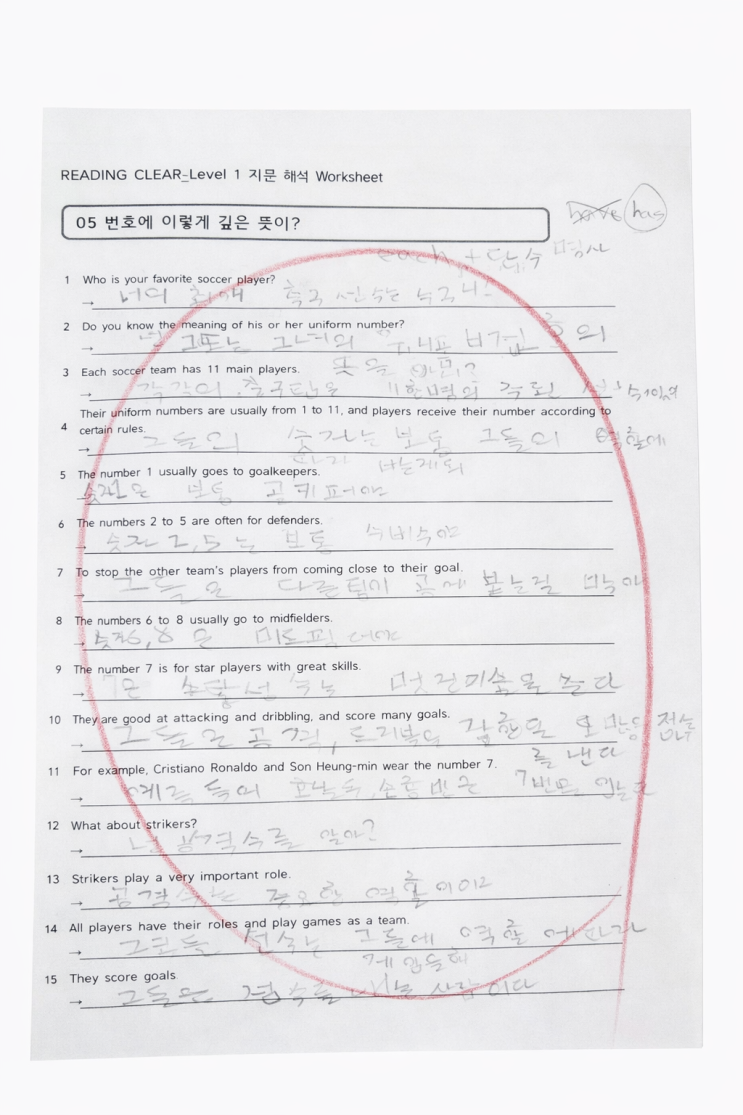 READING CLEAR_Level 1 지문 해석 Worksheet
05 번호에 이렇게 깊은 뜻이?
have has
each + 단수 명사
1 Who is your favorite soccer player?
→ 너의 최애 축구 선수는 누구니?
2 Do you know the meaning of his or her uniform number?
→ 넌 그또는 그녀의 유니폼 번호의
뜻을 아니?
3 Each soccer team has 11 main players.
→ 각각의 축구팀은 11명의 주된
4 Their uniform numbers are usually from 1 to 11, and players receive their number according to
certain rules.
→ 그들의 숫자는 보통 그들의 역할에
5 The number 1 usually goes to goalkeepers.
→ 보통 골키퍼야
6 The numbers 2 to 5 are often for defenders.
→ 숫자 2,5 는 보통 수비수야
7 To stop the other team's players from coming close to their goal.
→ 그들은 다른팀이 골에
8 The numbers 6 to 8 usually go to midfielders.
→ 숫자6,8 은
9 The number 7 is for star players with great skills.
→ 7은 멋진기술을
10 They are good at attacking and dribbling, and score many goals.
→ 그들은공격, 드리블을 잘한또 많은 점수
를 낸다
11 For example, Cristiano Ronaldo and Son Heung-min wear the number 7.
→ 예를 들어 7번을
12 What about strikers?
→ 공격수를 알아?
13 Strikers play a very important role.
→ 공격수는 중요한 역할이이다
14 All players have their roles and play games as a team.
→ 선수는 그들에 역할
15 They score goals.
→ 그들은 점수를 내는 사람이다